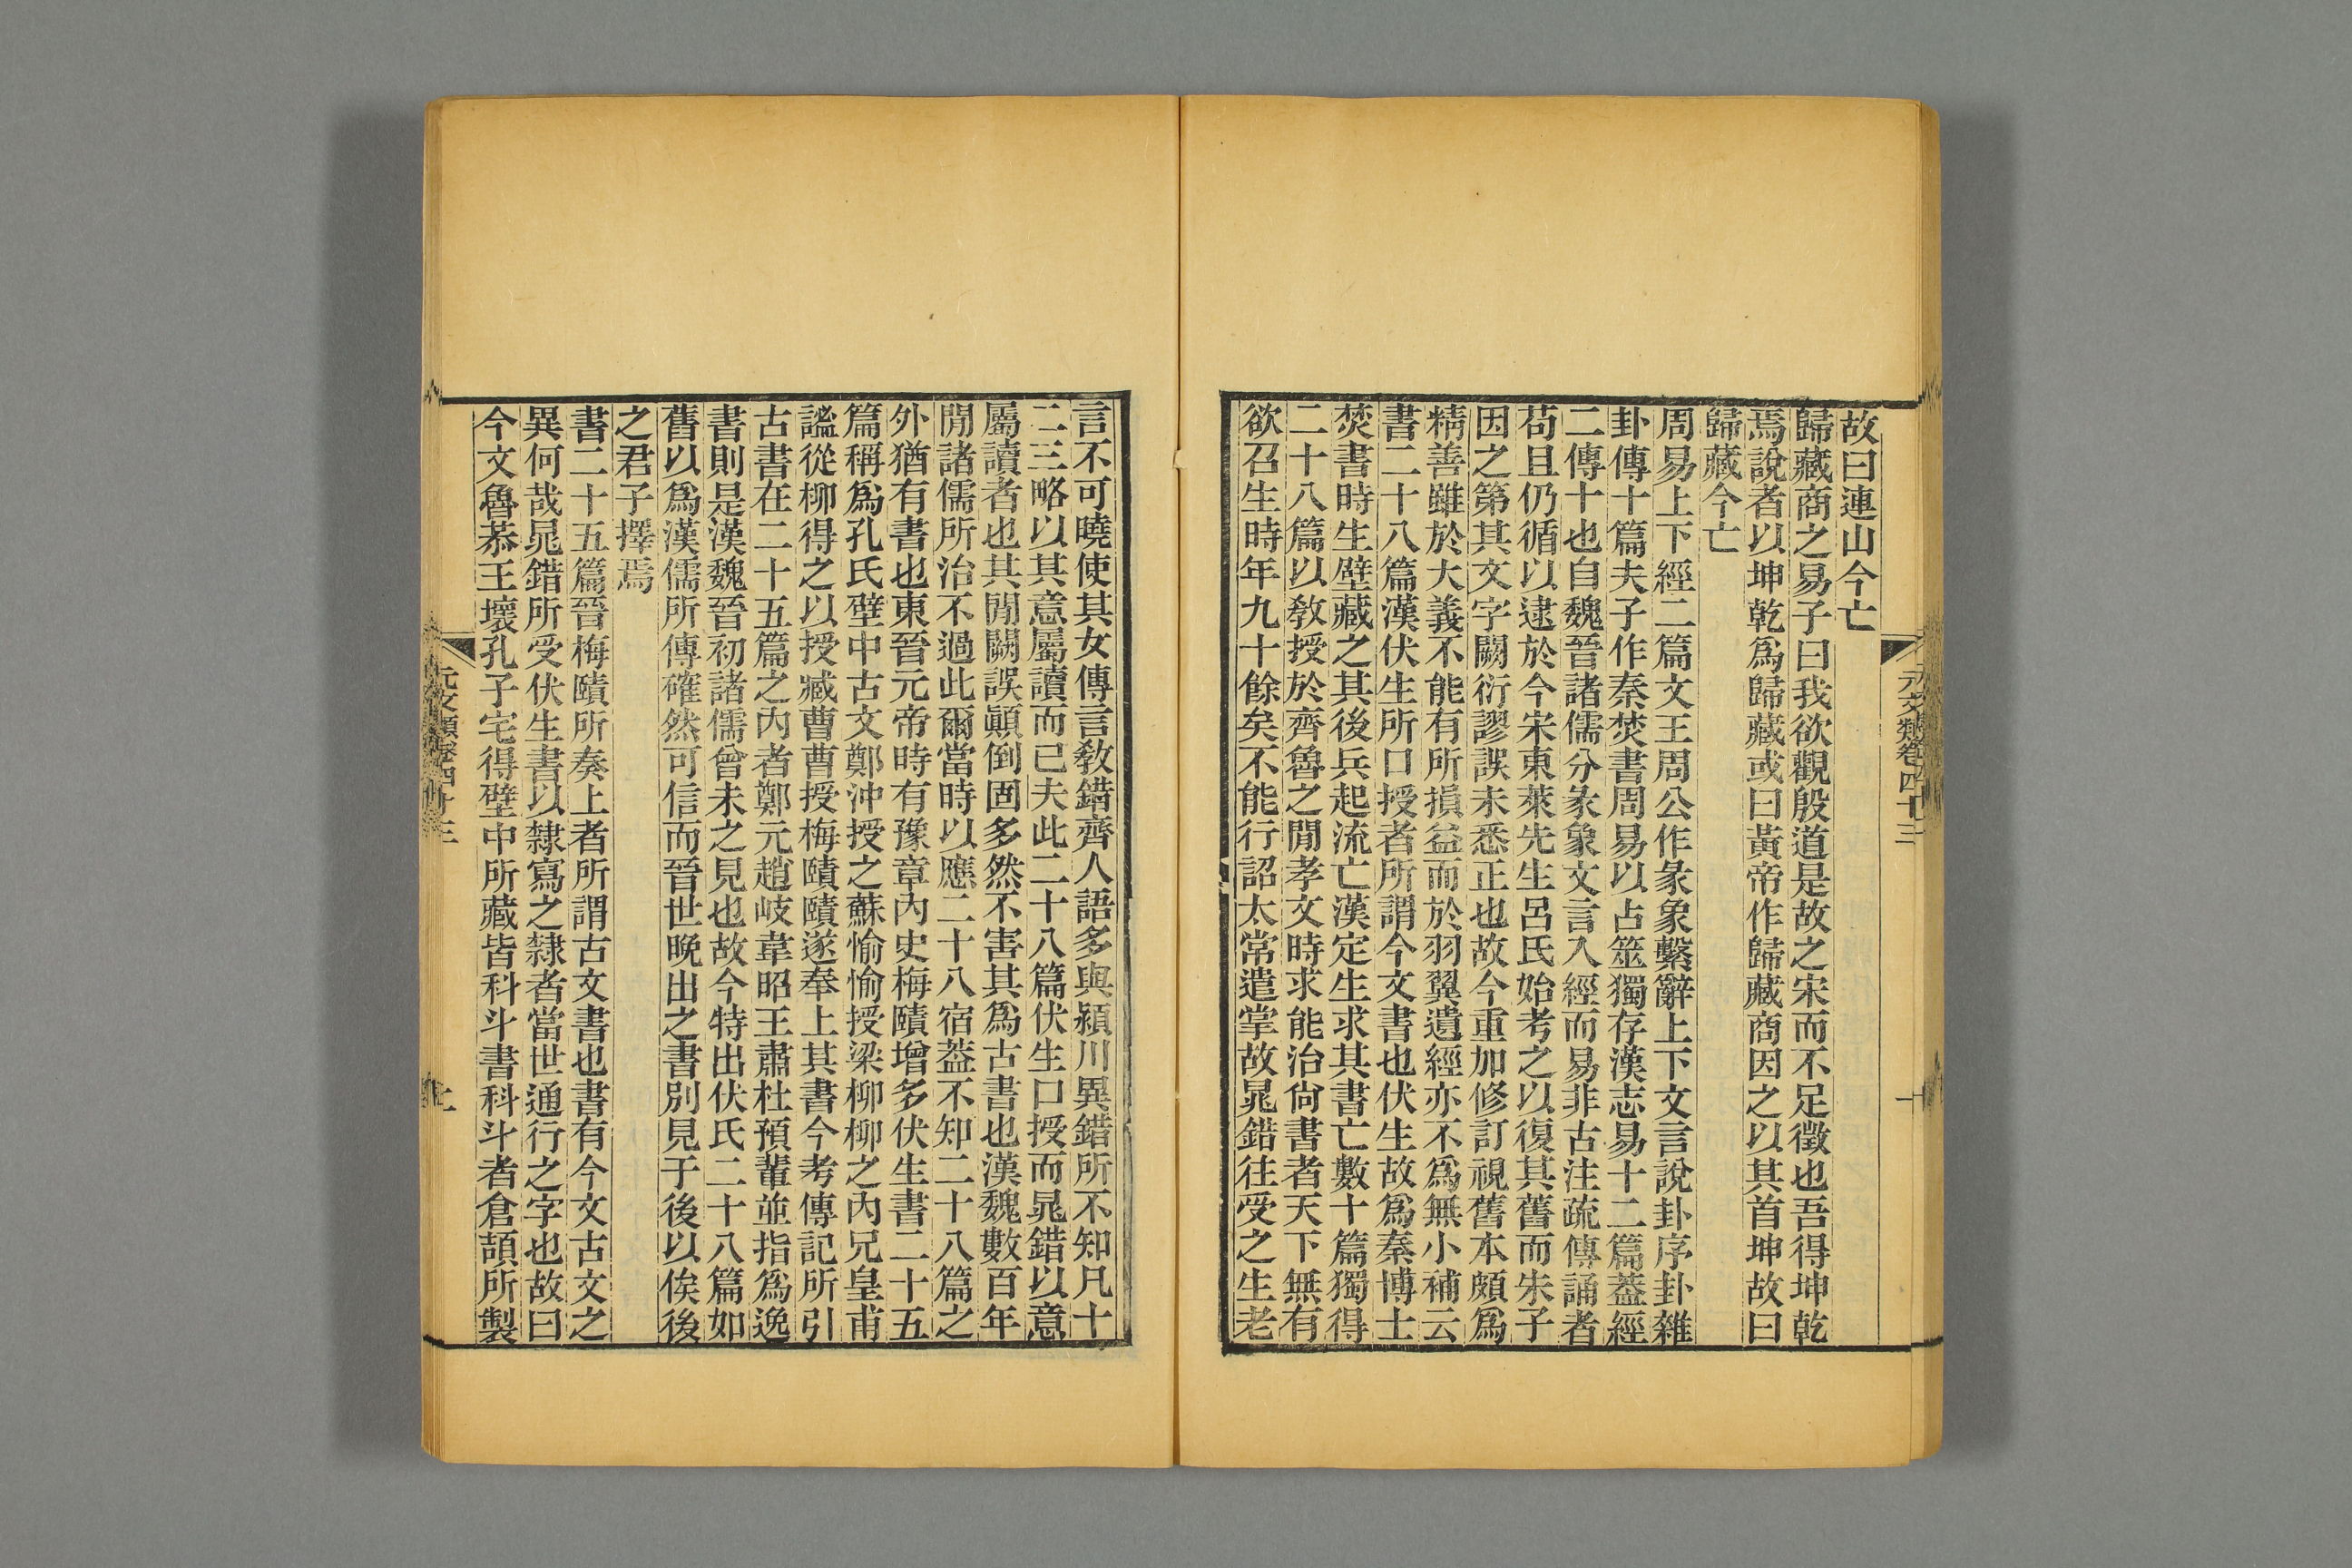 元文類卷四十三
十
故曰連山今亡
歸藏商之易子曰我欲觀殷道是故之宋而不足徵也吾得坤乾
焉說者以坤乾爲歸藏或曰黃帝作歸藏商因之以其首坤故曰
歸藏今亡
周易上下經二篇文王周公作彖象繫辭上下文言說卦序卦雜
卦傳十篇夫子作秦焚書周易以占筮獨存漢志易十二篇葢經
二傳十也自魏晉諸儒分彖象文言入經而易非古注疏傳誦者
苟且仍循以逮於今宋東萊先生呂氏始考之以復其舊而朱子
因之第其文字闕衍謬誤未悉正也故今重加修訂視舊本頗爲
精善雖於大義不能有所損益而於羽翼遺經亦不爲無小補云
書二十八篇漢伏生所口授者所謂今文書也伏生故爲秦博士
焚書時生壁藏之其後兵起流亡漢定生求其書亡數十篇獨得
二十八篇以敎授於齊魯之閒孝文時求能治尙書者天下無有
欲召生時年九十餘矣不能行詔太常遣掌故晁錯往受之生老
言不可曉使其女傳言敎錯齊人語多與潁川異錯所不知凡十
二三略以其意屬讀而已夫此二十八篇伏生口授而晁錯以意
屬讀者也其閒闕誤顚倒固多然不害其爲古書也漢魏數百年
閒諸儒所治不過此爾當時以應二十八宿葢不知二十八篇之
外猶有書也東晉元帝時有豫章內史梅賾增多伏生書二十五
篇稱爲孔氏壁中古文鄭沖授之蘇愉愉授梁柳柳之內兄皇甫
謐從柳得之以授臧曹曹授梅賾賾遂奉上其書今考傳記所引
古書在二十五篇之內者鄭元趙岐韋昭王肅杜預輩並指爲逸
書則是漢魏晉初諸儒曾未之見也故今特出伏氏二十八篇如
舊以爲漢儒所傳確然可信而晉世晚出之書別見于後以俟後
之君子擇焉
書二十五篇晉梅賾所奏上者所謂古文書也書有今文古文之
異何哉晁錯所受伏生書以隸寫之隸者當世通行之字也故曰
今文魯恭王壞孔子宅得壁中所藏皆科斗書科斗者倉頡所製
元文類卷四十三